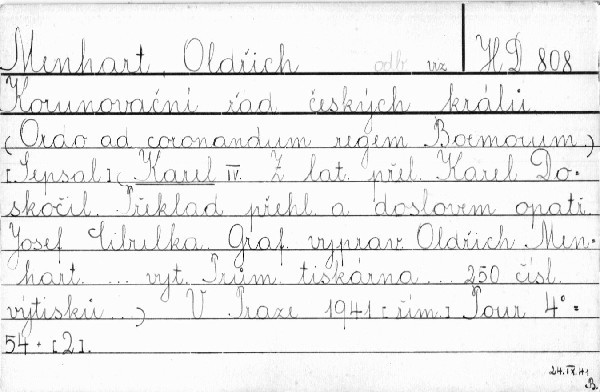 Menhart, Oldřich odbr. viz HD 808
Korunovační řád českých králů
(Ordo ad coronandum regem Boemorum.)
[Sepsal] (Karel IV. Z lat. přel. Karel Do=
skočil. Překlad přehl. a doslovem opatř.
Josef Cibulka. Graf. vyprav. Oldřich Men=
hart. ... vyt. Prům. tiskárna ... 250 čísl.
výtisků ...) V Praze 1941 [řím.] Pour 4° =
54 + [2].
24.IX.41
B.